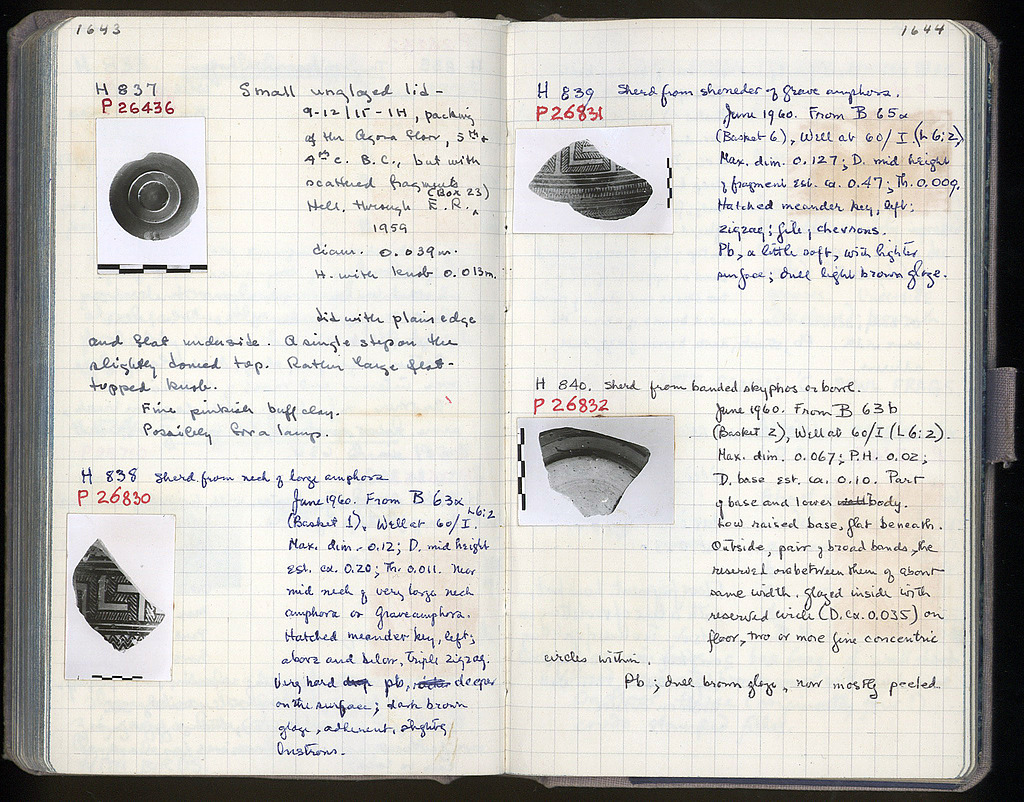 1643
H 837
P 26436
Small unglazed lid -
9-12/15-1H, packing
of the Agora floor, 5th +
4th c. B.C., but with
scattered fragments
(Box 23)
Hell. through E.R.
1959
diam. 0.039 m.
H. with knob 0.013m.
Lid with plain edge
and flat underside. A single step on the
slightly domed top. Rather large flat-
topped knob.
Fine pinkish buff clay.
Possibly for a lamp.
H 838 Sherd from neck of large amphora
P 26830
June 1960. From B 63α
(Basket 1), Well at 60/I. L 6:2
Max. dim. 0.12; D. mid height
est. ca. 0.20; Th. 0.011. Near
mid neck of very large neck
amphora or grave amphora.
Hatched meander key, left;
above and below, triple zigzag.
Very hard pb, deeper
on the surface; dark brown
glaze, adherent, slightly
lustrous.
1644
H 839 Sherd from shoulder of grave amphora.
P 26831
June 1960. From B 65α
(Basket 6), Well at 60/I. (L 6:2)
Max. dim. 0.127; D. mid height
of fragment est. ca. 0.47; Th. 0.009.
Hatched meander key, left;
zigzag; file, chevrons.
Pb, a little soft, with lighter
surface; dull light brown glaze.
H 840. Sherd from banded skyphos or bowl.
P 26832
June 1960. From B 63b
(Basket 2), Well at 60/I (L 6:2).
Max. dim. 0.067; P.H. 0.02;
D. base est. ca. 0.10. Part
of base and lower body.
Low raised base, flat beneath.
Outside, pair of broad bands, the
reserved one between them of about
same width. Glazed inside with
reserved circle (D. ca. 0.035) on
floor, two or more fine concentric
circles within.
Pb; dull brown glaze, now mostly peeled.